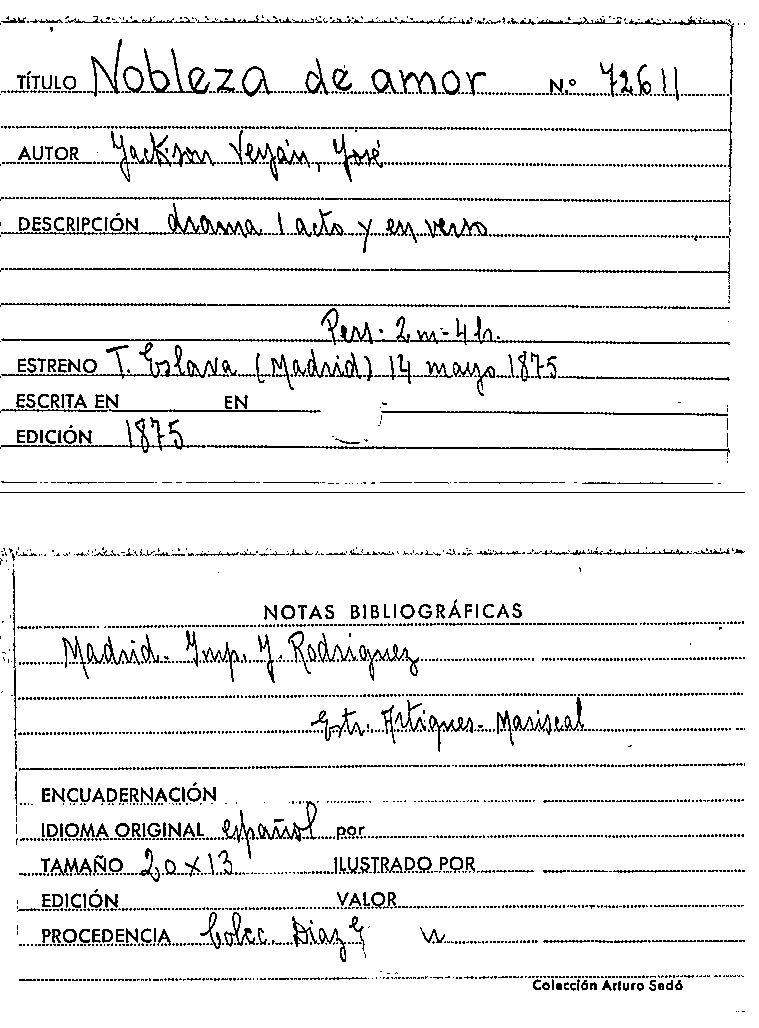 TÍTULO Nobleza de amor N.º 72611
AUTOR Jackson Veyán, José
DESCRIPCIÓN drama 1 acto y en verso
Pers. 2 m - 4 h.
ESTRENO T. Eslava (Madrid) 14 mayo 1875
ESCRITA EN EN
EDICIÓN 1875
NOTAS BIBLIOGRÁFICAS
Madrid. Imp. J. Rodriguez
Estr. Artigues - Mariscal
ENCUADERNACIÓN
IDIOMA ORIGINAL español por
TAMAÑO 20 x 13 ILUSTRADO POR
EDICIÓN VALOR
PROCEDENCIA Colcc. Diaz
Colección Arturo Sedó